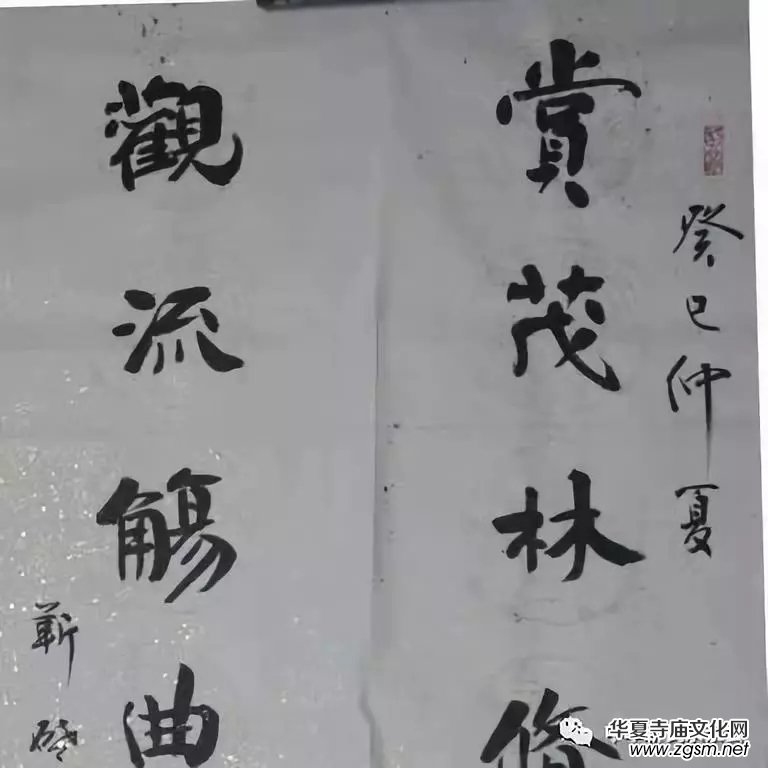 賞茂林修
觀流觴曲
癸巳仲夏
靳
华夏寺庙文化网
www.zgsm.net